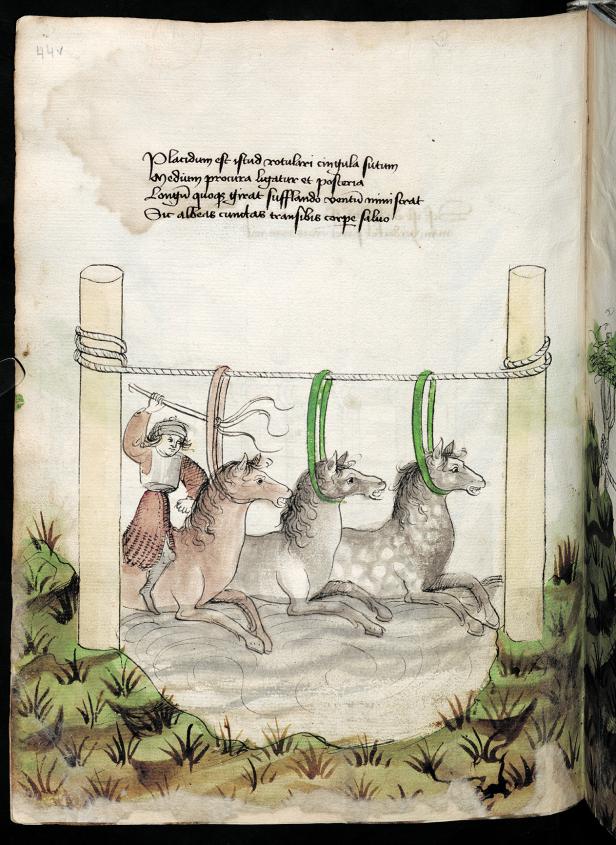 44v
Placidum est istud rotulari cingula sutum
Medium procura ligatur et posteria
Longū quoqȝ girat sufflando ventū mini strat
Sic albeas cunctas transibis corpe saluo